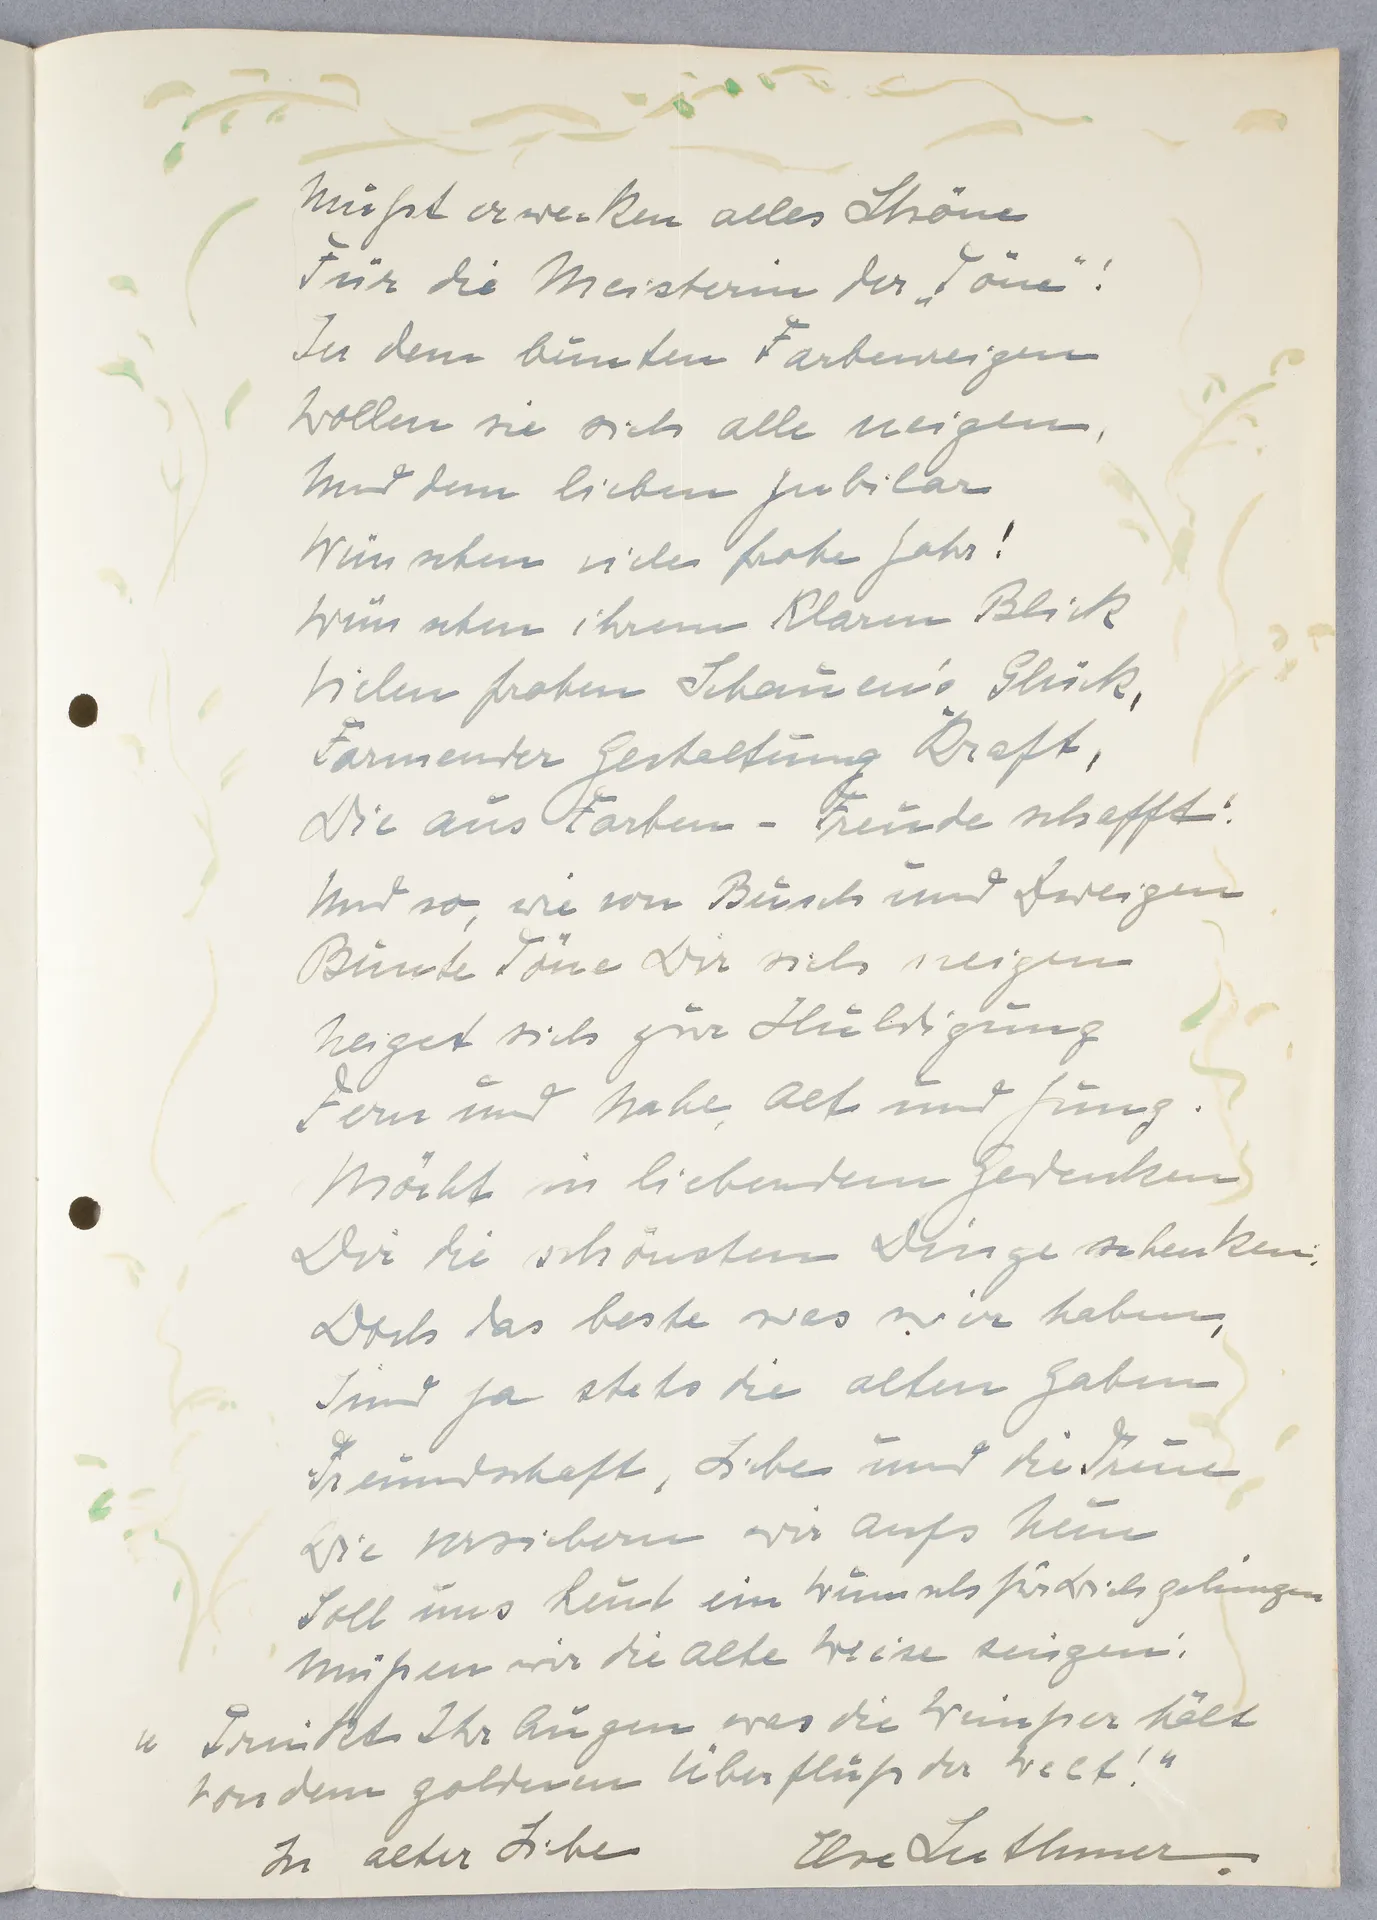 Mußt erwecken alles Schöne
Für die Meisterin der „Töne"!
In dem bunten Farbenreigen
Wollen sie sich alle neigen,
Und dem lieben Jubilar
Wünschen viele frohe Jahr!
Wünschen ihrem klaren Blick
Vielen frohen Schauen's Glück,
Formender Gestaltung Kraft,
Die aus Farben - Freude schafft!
Und so, wie von Busch und Zweigen
Bunte Töne Dir sich neigen
Neiget sich zur Huldigung
Fern und Nahe, Alt und Jung.
Möcht in liebendem Gedenken
Dir die schönsten Dinge schenken.
Doch das beste was wir haben,
Sind ja stets die alten Gaben
Freundschaft, Liebe und die Treue
Die versichern wir aufs Neue
Soll uns heut ein Wunsch für Dich gelingen
Müßen wir die alte Weise singen:
„ Trinkt Ihr Augen was die Wimper hält
Von dem goldenen Überfluß der Welt!"
In alter Liebe Else Luthmer.